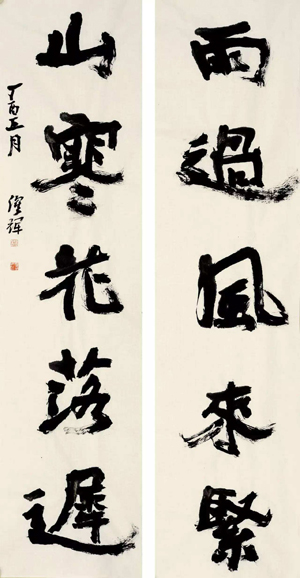 雨過風來緊
山寒花落遲
丁酉正月